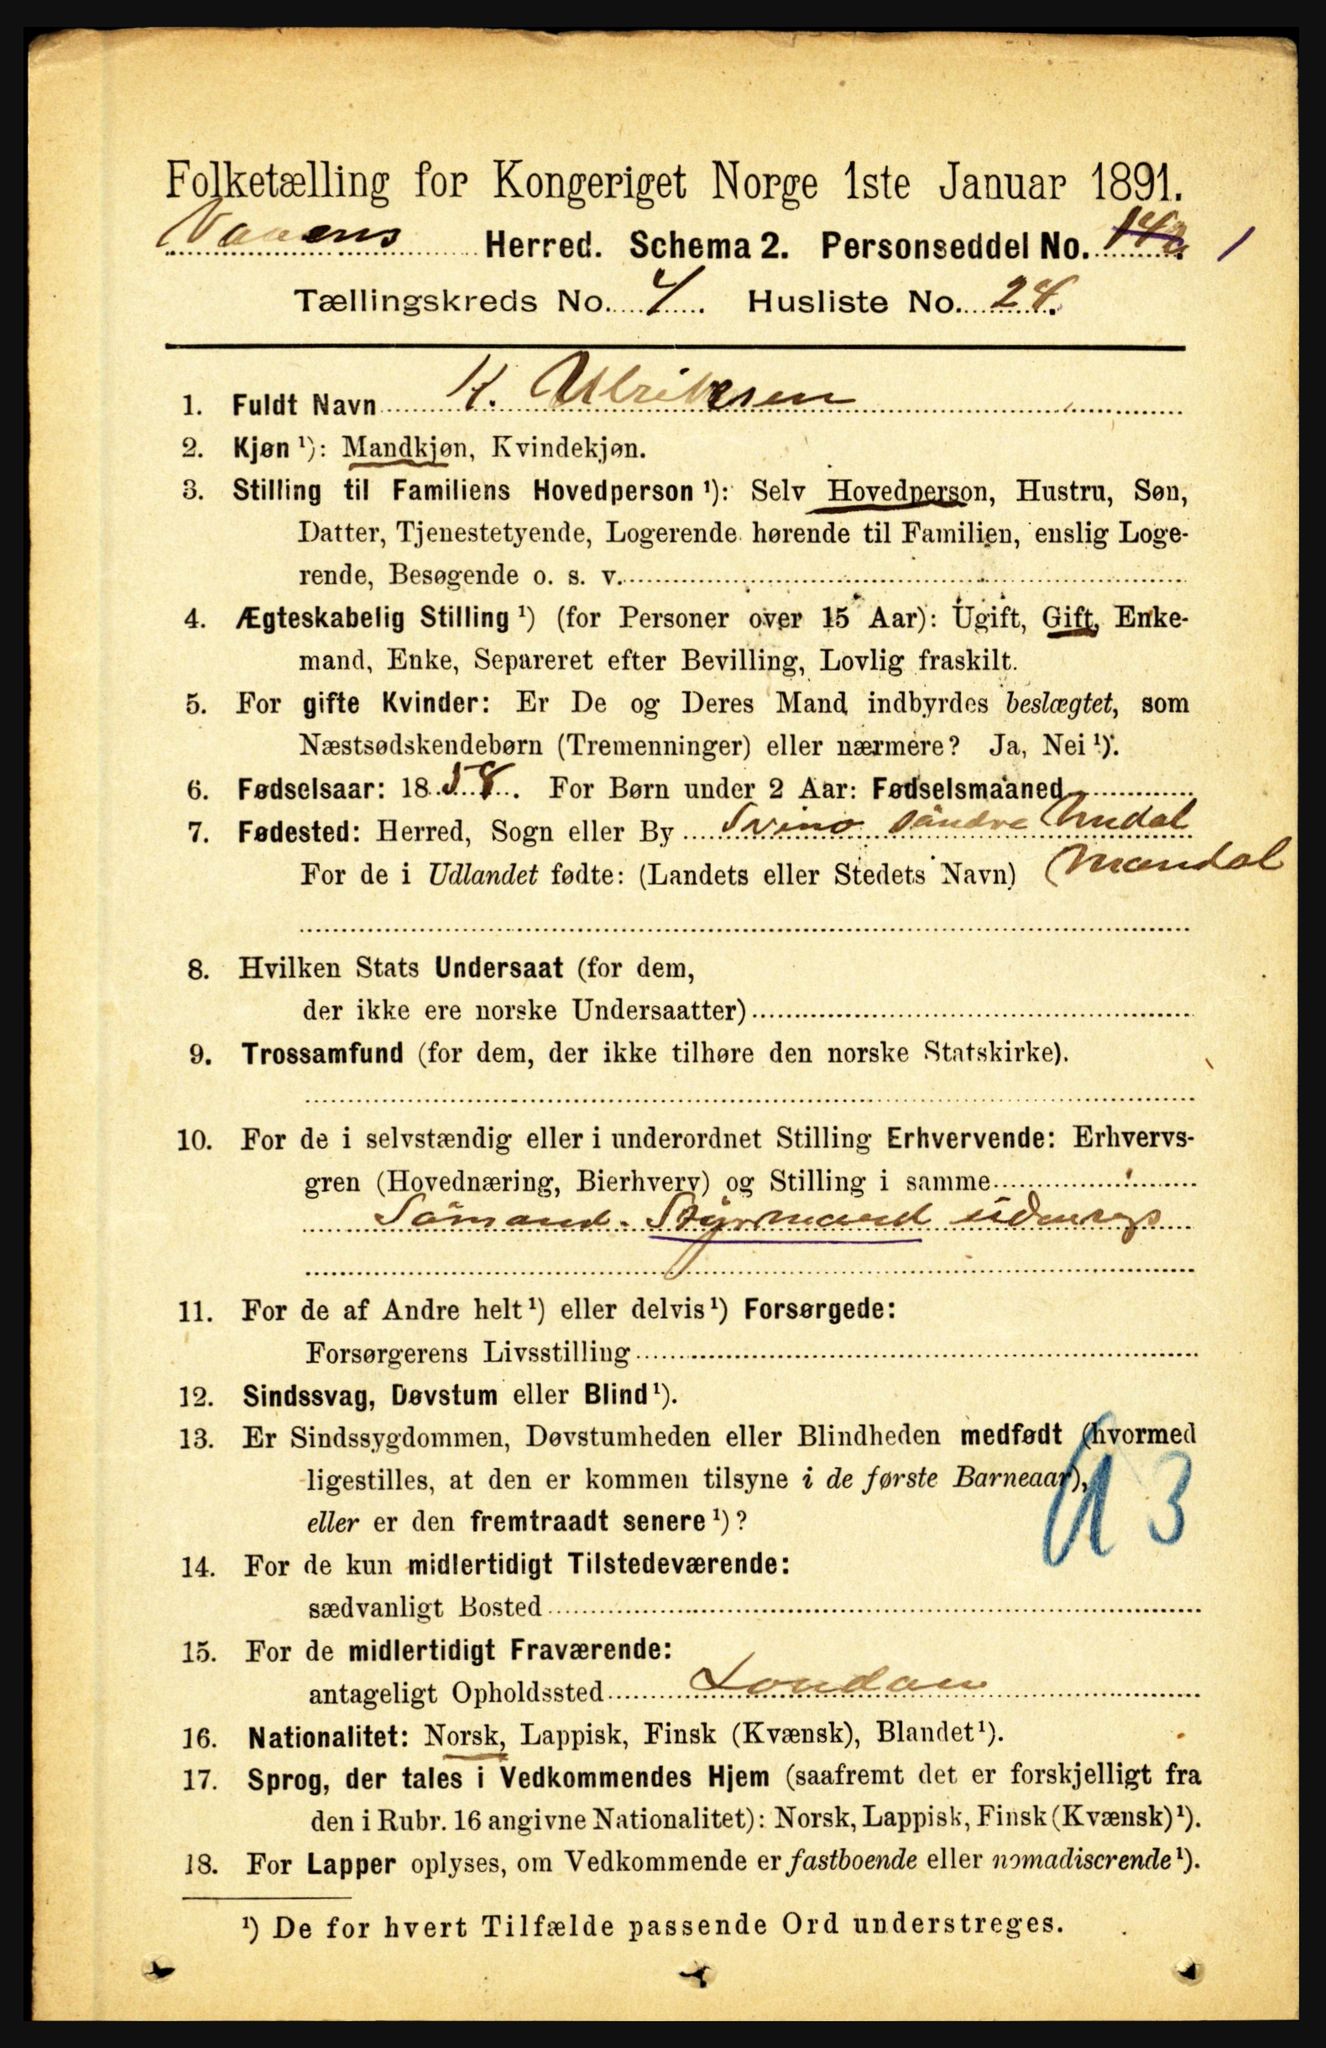 Folketælling for Kongeriget Norge 1ste Januar 1891.
Herred. Schema 2. Personseddel No. 1
Tællingskreds No. 4. Husliste No. 24.
1. Fuldt Navn K. Ulriksen
2. Kjøn ¹): Mandkjøn, Kvindekjøn.
3. Stilling til Familiens Hovedperson ¹): Selv Hovedperson, Hustru, Søn,
Datter, Tjenestetyende, Logerende hørende til Familien, enslig Loge-
rende, Besøgende o. s. v.
4. Ægteskabelig Stilling ¹) (for Personer over 15 Aar): Ugift, Gift, Enke-
mand, Enke, Separeret efter Bevilling, Lovlig fraskilt.
5. For gifte Kvinder: Er De og Deres Mand indbyrdes beslægtet, som
Næstsødskendebørn (Tremenninger) eller nærmere? Ja, Nei ¹).
6. Fødselsaar: 1858. For Børn under 2 Aar: Fødselsmaaned
7. Fødested: Herred, Sogn eller By Svinø søndre Undal
For de i Udlandet fødte: (Landets eller Stedets Navn) Mandal
8. Hvilken Stats Undersaat (for dem,
der ikke ere norske Undersaatter)
9. Trossamfund (for dem, der ikke tilhøre den norske Statskirke).
10. For de i selvstændig eller i underordnet Stilling Erhvervende: Erhvervs-
gren (Hovednæring, Bierhverv) og Stilling i samme
Sømand. Styrmand udenrigs
11. For de af Andre helt ¹) eller delvis ¹) Forsørgede:
Forsørgerens Livsstilling
12. Sindssvag, Døvstum eller Blind ¹).
13. Er Sindssygdommen, Døvstumheden eller Blindheden medfødt (hvormed
ligestilles, at den er kommen tilsyne i de første Barneaar),
eller er den fremtraadt senere ¹)?
14. For de kun midlertidigt Tilstedeværende:
sædvanligt Bosted
15. For de midlertidigt Fraværende:
antageligt Opholdssted London
16. Nationalitet: Norsk, Lappisk, Finsk (Kvænsk), Blandet ¹).
17. Sprog, der tales i Vedkommendes Hjem (saafremt det er forskjelligt fra
den i Rubr. 16 angivne Nationalitet): Norsk, Lappisk, Finsk (Kvænsk) ¹).
18. For Lapper oplyses, om Vedkommende er fastboende eller nomadiserende ¹).
¹) De for hvert Tilfælde passende Ord understreges.